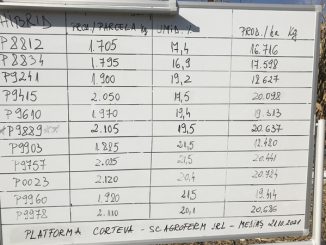 HIBRID PROD/PARCELA-kg UMID. % PROD./ha kg
P8812 1.705 17,4 16.716
P8834 1.795 16,9 17.598
P9241 1.900 19,2 18.627
P9415 2.050 17,5 20.098
P9610 1.970 19,4 19.313
*P9889** 2.105 19,5 20.637
P9903 1.885 21,5 18.480
P9757 2.085 21,5 20.441
P0023 2.120 20,4 20.784
P9960 1.980 21,5 19.414
P9978 2.110 20,1 20.686
PLATFORMA CORTEVA - SC AGROFERM SRL - 21.10.2021